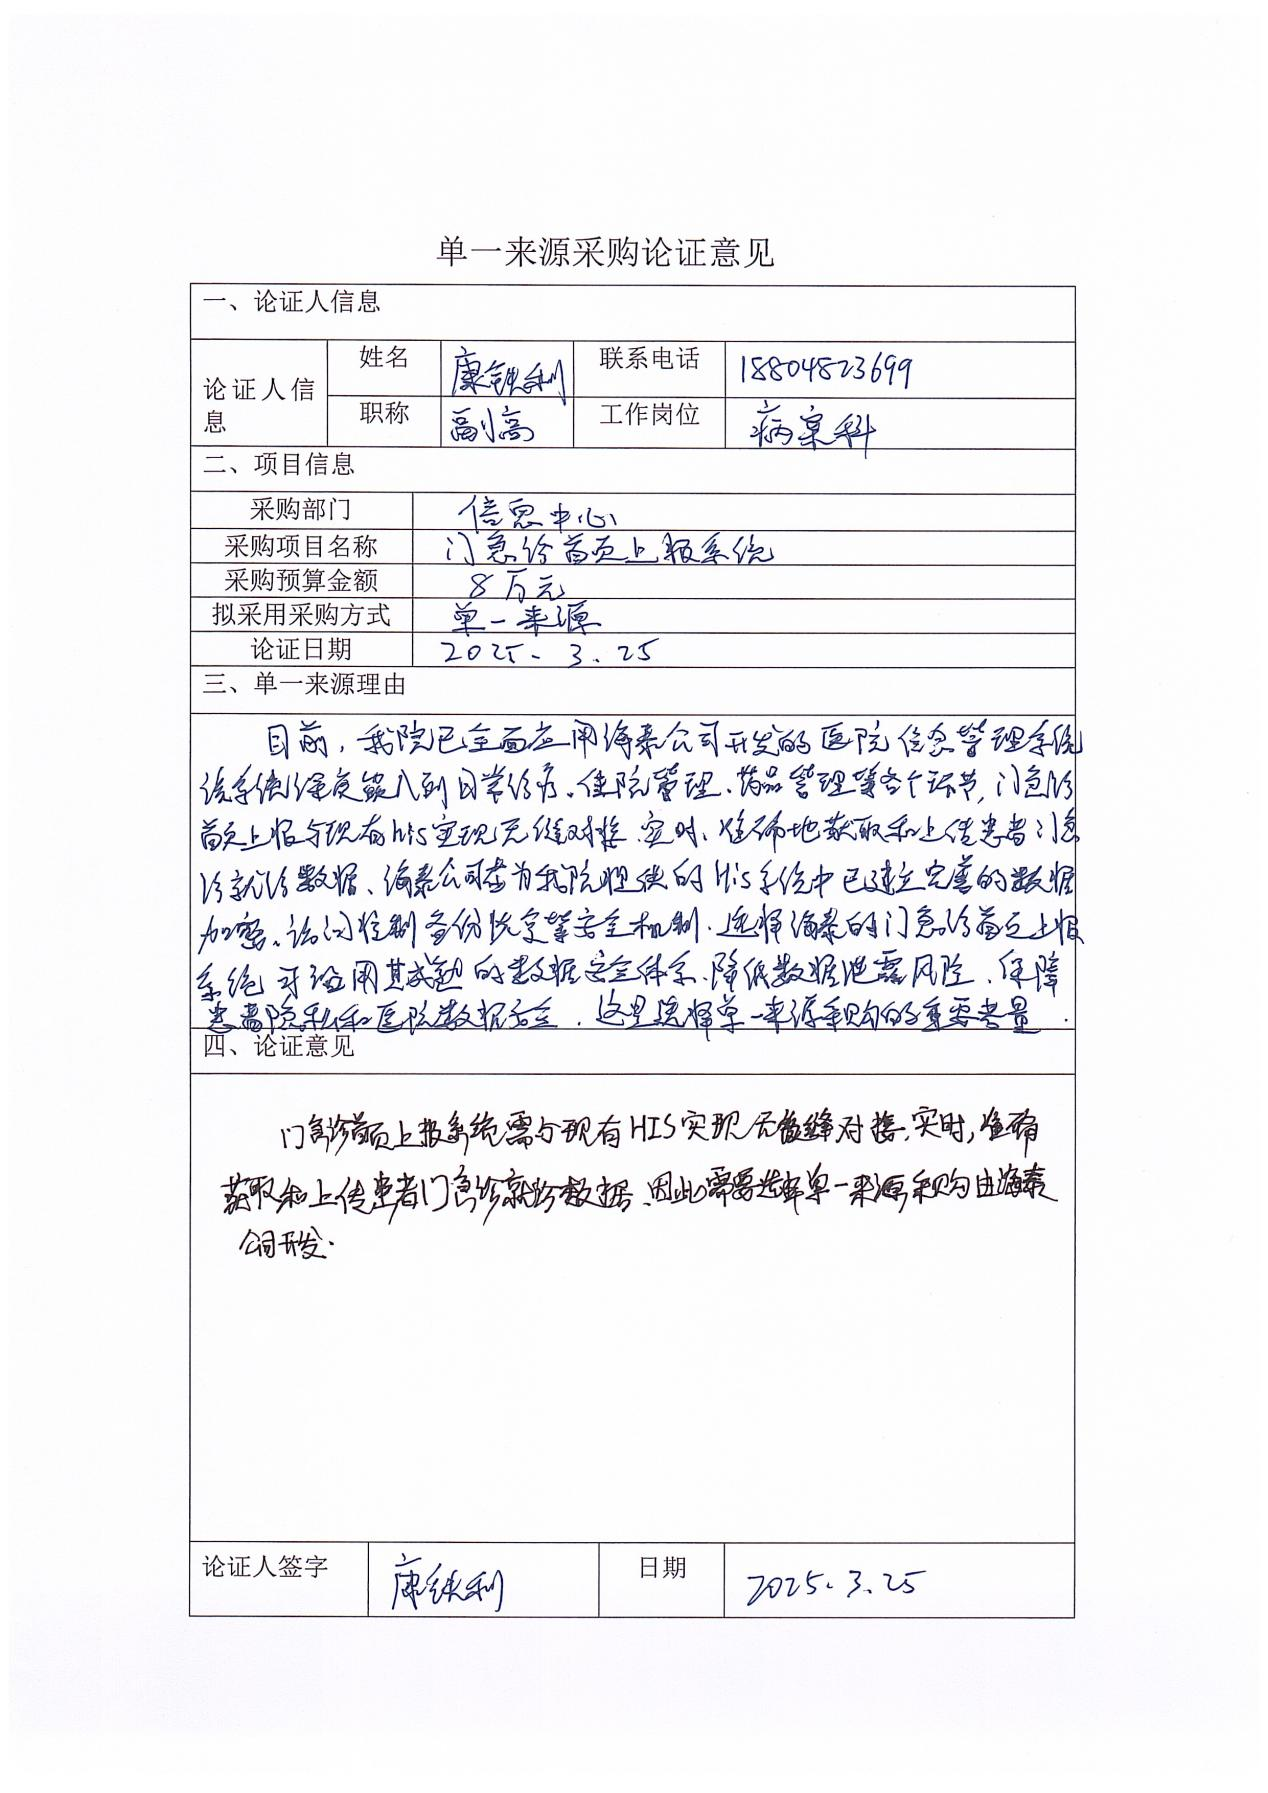 单一来源采购论证意见
一、论证人信息
论证人信息 姓名 康铁利 联系电话 18804823699
职称 副高 工作岗位 病案科
二、项目信息
采购部门 信息中心
采购项目名称 门急诊首页上报系统
采购预算金额 8万元
拟采用采购方式 单一来源
论证日期 2025.3.25
三、单一来源理由
目前,我院已全面应用海泰公司开发的医院信息管理系统
该系统深度嵌入到日常诊疗、住院管理、药品管理等各个环节,门急诊
首页上报与现有his实现无缝对接.实时、准确地获取和上传患者门急
诊就诊数据、海泰公司在为我院提供的His系统中已建立完善的数据
加密、访问控制备份恢复等安全机制.选择海泰的门急诊首页上报
系统可沿用其成熟的数据安全体系.降低数据泄露风险、保障
患者隐私和医院数据安全.这是选择单一来源采购的重要考量.
四、论证意见
门急诊首页上报系统需与现有HIS实现无缝对接.实时,准确
获取和上传患者门急诊就诊数据、因此需要选择单一来源采购由海泰
公司开发.
论证人签字 康铁利 日期 2025.3.25